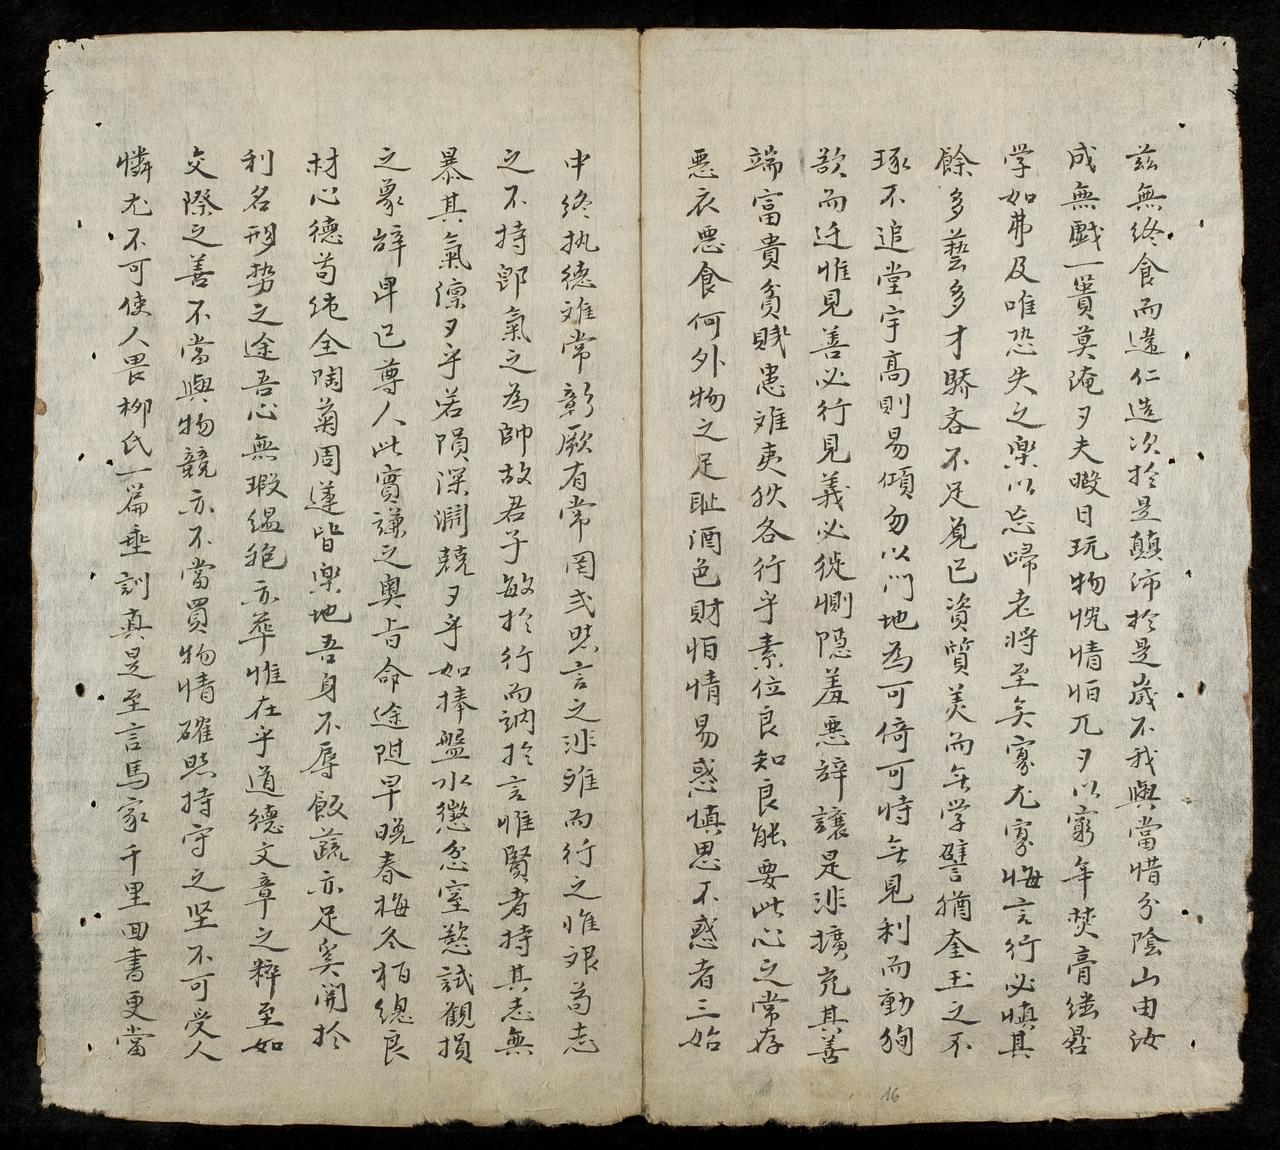 兹無終食而違仁造次於是顛沛於是歲不我與當惜分陰山由汝
成無虧一簣莫淹夕夫暇日玩物悅情怕兀夕以窮年焚膏继晷
学如弗及唯恐失之楽以忘歸老將至矣寡尤寡悔言行必慎其
餘多藝多才驕吝不足覓已資質美而无学譬猶奎玉之不
琢不追堂宇高則易傾勿以門地為可倚可恃无見利而動徇
欲而迁惟見善必行見義必從惻隐羞惡辞讓是非擴充其善
端富貴貧賤患难夷狄各行乎素位良知良能要此心之常存
悪衣悪食何外物之足耻酒色財怕情易惑慎思不惑者三始
中終执德难常彰厥有常罔或㸃言之非难而行之惟艰苟志
之不持郎氣之為帥故君子敏於行而訥於言惟賢者持其志無
暴其氣凛夕乎若隕深淵兢夕乎如捧盤水懲忿窒慾試觀損
之象辞卑己尊人此實謙之奥旨命途距早晚春梅冬柏總良
材心德苟纯全陶菊周蓮皆楽地吾身不辱飯蔬亦足奚關於
利名形势之途吾心無瑕緼袍亦華惟在乎道德文章之粹至如
交際之善不當與物競亦不當買物情確㸃持守之坚不可受人
憐尤不可使人畏柳氏一篇垂訓真是至言馬家千里回書更當